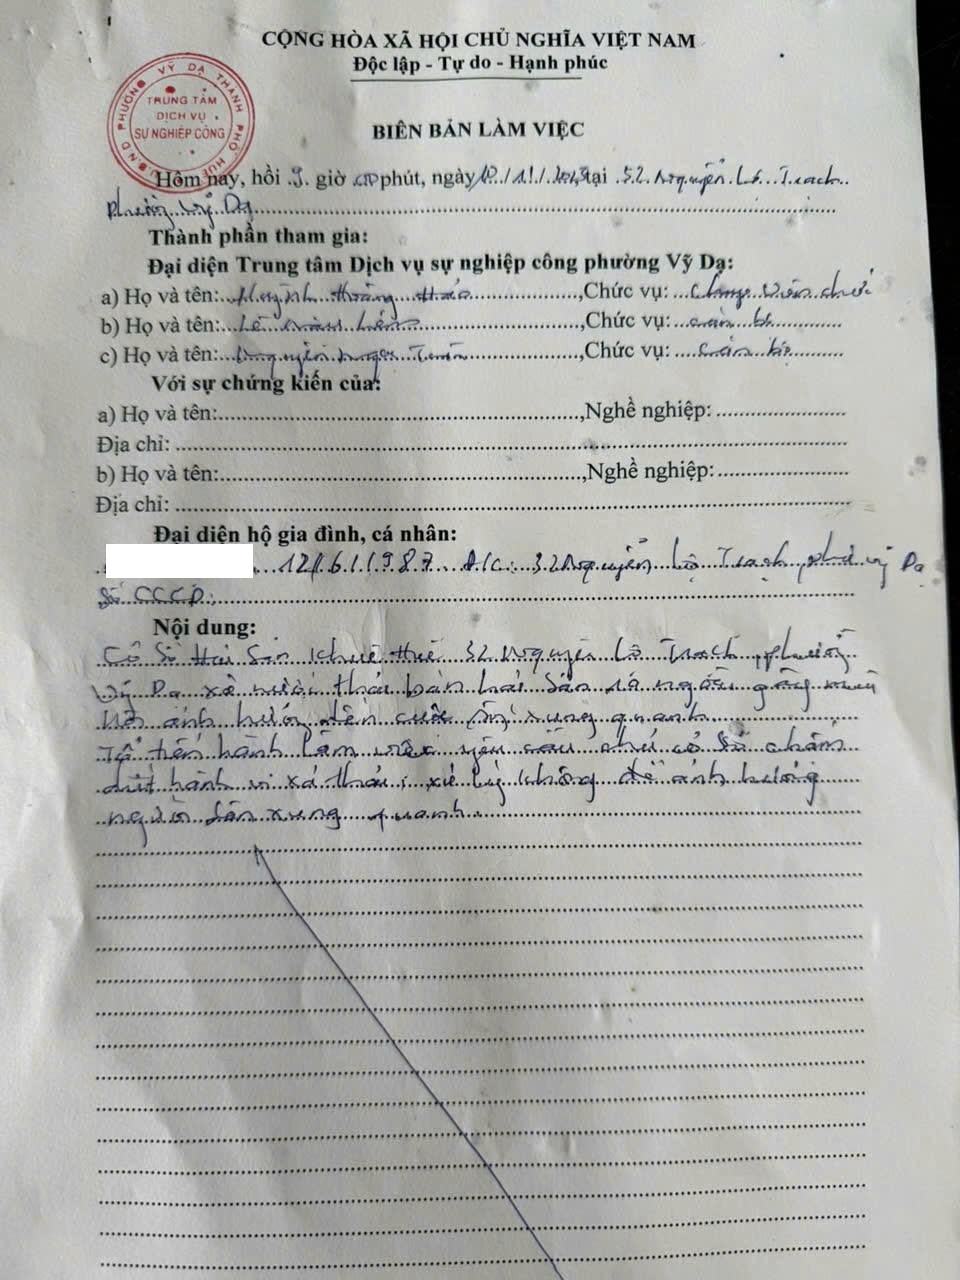 CỘNG HÒA XÃ HỘI CHỦ NGHĨA VIỆT NAM
Độc lập - Tự do - Hạnh phúc
U.B.N.D PHƯỜNG VỸ DẠ THÀNH PHỐ HUẾ
TRUNG TÂM
DỊCH VỤ
SỰ NGHIỆP CÔNG
BIÊN BẢN LÀM VIỆC
Hôm nay, hồi 9 giờ 00 phút, ngày /11/ tại 32 Nguyễn Lộ Trạch
phường Vỹ Dạ
Thành phần tham gia:
Đại diện Trung tâm Dịch vụ sự nghiệp công phường Vỹ Dạ:
a) Họ và tên: Hoàng ,Chức vụ:
b) Họ và tên: Lê ,Chức vụ: cán bộ
c) Họ và tên: Nguyễn Ngọc ,Chức vụ: Cán bộ
Với sự chứng kiến của:
a) Họ và tên: ,Nghề nghiệp:
Địa chỉ:
b) Họ và tên: ,Nghề nghiệp:
Địa chỉ:
Đại diện hộ gia đình, cá nhân:
12/6/1987 Đ/C: 32 Nguyễn Lộ Trạch, phường Vỹ Dạ
Số CCCD:
Nội dung:
Cơ Sở Hải Sản Khuê Huế 32 Nguyễn Lộ Trạch, phường
Vỹ Dạ xả nước thải bán hải sản ra ngoài gây mùi
hôi ảnh hưởng đến cuộc sống xung quanh
Tổ tiến hành làm việc yêu cầu chủ cơ sở chấm
dứt hành vi xả thải, xử lý không để ảnh hưởng
người dân xung quanh.